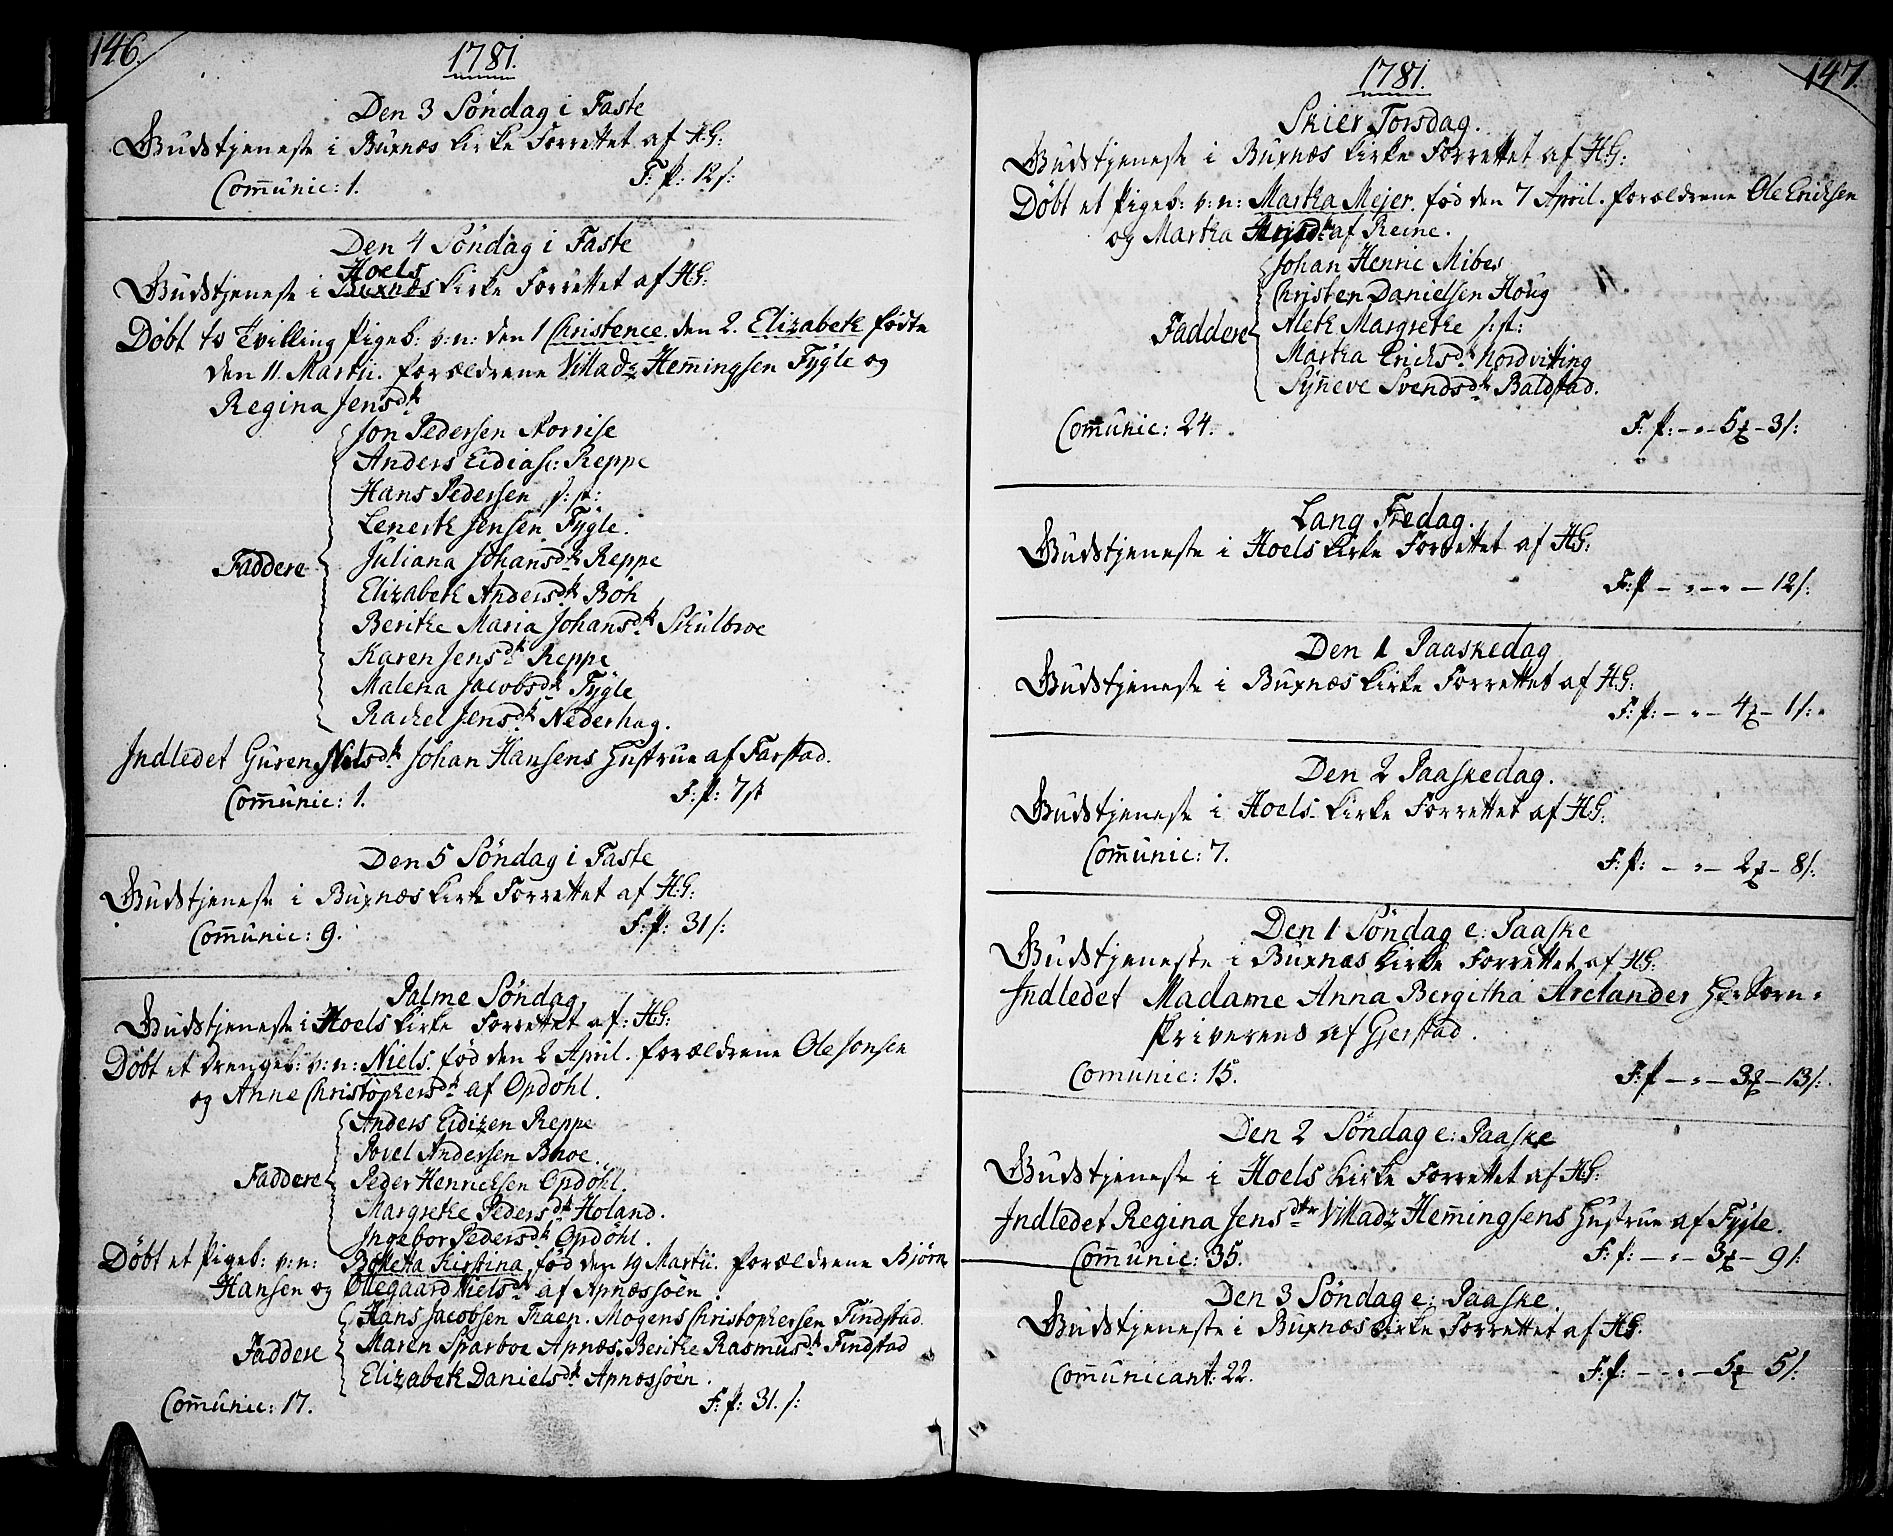 146.
1781.
Den 3 Söndag i Faste
Gudstjeneste i Buxnæs Kirke Forrettet af H.G:
F: p: 12 s:
Com̄unic: 1.
Den 4 Söndag i Faste
Hoels
Gudstjeneste i Buxnæs Kirke Forrettet af H.G:
Döbt to Tvilling Pigeb: v: n: den 1 Christence den 2. Elizabeth födte
den 11. Martii. forældrene Villadz Hem̄ingsen Fygle og
Regina Jensdtr
Jon Pedersen Rorrise
Anders Eidias: Reppe
Hans Pedersen s: st:
Lenerth Jensen Fygle.
Faddere
Juliana Johansdtr Reppe
Elizabeth Andersdtr Böh
Berithe Maria Johansdtr Schulbroe
Karen Jensdtr Reppe
Malena Jacobsdtr Fygle
Rachel Jensdtr Nederhag.
Indledet Guren Nielsdtr Johan Hansens Hustrue af Farstad.
Com̄unic: 1.
F: p: 7 st
Den 5 Söndag i Faste
Gudstjeneste i Buxnæs Kirke Forrettet af H.G:
Com̄unic: 9.
F: p: 31 s:
Palme Söndag
Gudstjeneste i Hoels Kirke Forrettet af: H.G:
Döbt et Drengeb: v: n: Niels. fød den 2 April. forældrene Ole Jonsen
og Anne Christophersdtr af Opdöhl.
Anders Eidizen Reppe
Povel Andersen Bøoe.
Faddere
Peder Henrichsen Opdöhl.
Margrethe Pedersdtr Holand.
Ingebor Pedersdtr Opdöhl.
Döbt et Pigeb: v: n: Boletta Kirstina, fød den 19 Martii. forældrene Bjørn
Hansen og Ollegaard Nielsdtr af Apnæssöen.
Hans Jacobsen Træen. Mogens Christophersen Findstad.
Faddere
Maren Sparboe Apnæs. Berithe Rasmusdtr Findstad
Elizabeth Danielsdtr Apnæssöen.
Com̄unic: 17.
F: p: 31. s:
147.
1781.
Skier Torsdag.
Gudstjeneste i Buxnæs Kirke Forrettet af H.G:
Döbt et Pigeb: v: n: Martha Mejer. fød den 7 April. forældrene Ole Erichsen
og Martha af Reine.
Johan Henric Mibes
Christen Danielsen Houg
Faddere
Aleth Margrethe s: st:
Martha Erichsdtr Nordviting
Syneve Svendsdtr Balstad.
Com̄unic: 24.
F: p: - " - 5 ℥ - 3 s:
Lang Fredag.
Gudstjeneste i Hoels Kirke Forrettet af H.G:
F: p - " - " - 12 s:
Den 1 Paaskedag
Gudstjeneste i Buxnæs Kirke Forrettet af H.G:
F: p: - " - 4 ℥ - 1 s:
Den 2 Paaskedag.
Gudstjeneste i Hoels Kirke Forrettet af H.G:
Com̄unic: 7.
F: p: - " - 2 ℥ - 8 s.
Den 1 Söndag e: Paaske
Gudstjeneste i Buxnæs Kirke Forrettet af H.G:
Indledet Madame Anna Bergitha Arctander Hr: Soren-
skriverens af Gjerstad.
Comunic: 15.
F: p - " - 3 ℥ - 13 s:
Den 2 Söndag e: Paaske
Gudstjeneste i Hoels Kirke Forrettet af H.G:
Indledet Regina Jensdtr Villadz Hem̄ingsens Hustrue af Fygle.
Com̄unic: 35.
F: p: - " - 3 ℥ - 9 s:
Den 3 Söndag e: Paaske.
Gudstjeneste i Buxnæs Kirke Forrettet af H.G.
Com̄unicant: 22.
F: p: - " - 5 ℥ 5 s: